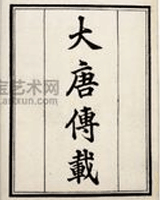 大唐傳載
宝艺术网
artxun.com